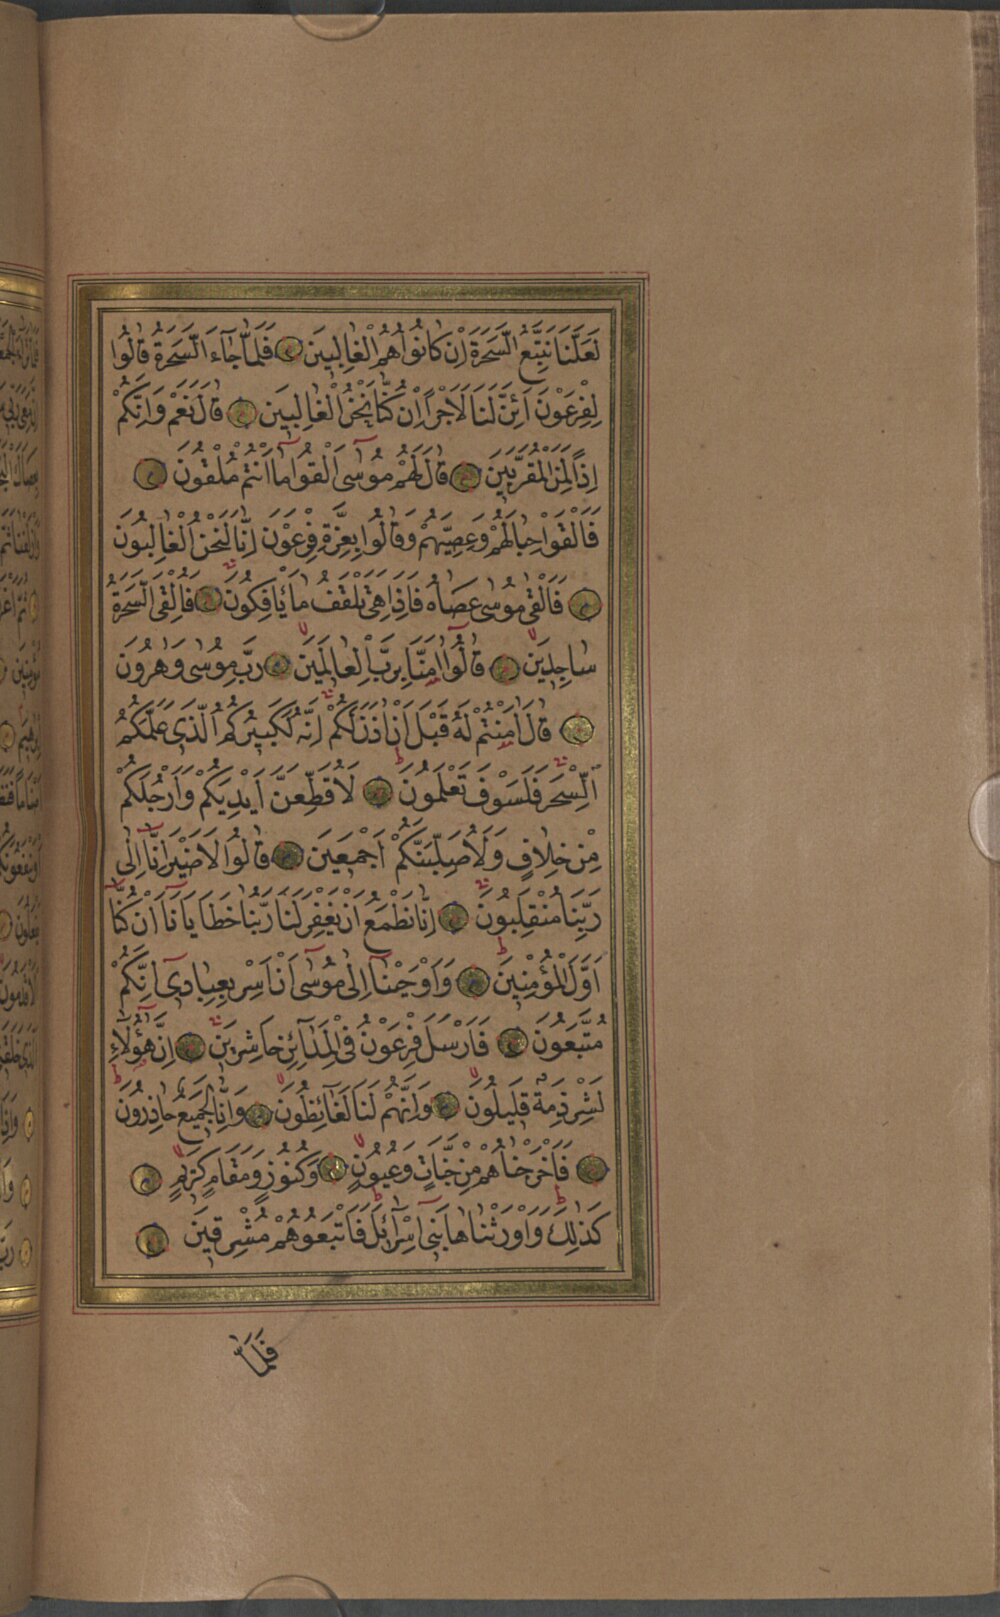 لَعَلَّنَا نَتَّبِعُ السَّحَرَةَ اِنْ كَانُوا هُمُ الْغَالِبِينَ فَلَمَّا جَآءَ السَّحَرَةُ قَالُوا
لِفِرْعَوْنَ اَئِنَّ لَنَا لَاَجْرًا اِنْ كُنَّا نَحْنُ الْغَالِبِينَ قَالَ نَعَمْ وَاِنَّكُمْ
اِذًا لَمِنَ الْمُقَرَّبِينَ قَالَ لَهُمْ مُوسٰٓى اَلْقُوا مَٓا اَنْتُمْ مُلْقُونَ
فَاَلْقَوْا حِبَالَهُمْ وَعِصِيَّهُمْ وَقَالُوا بِعِزَّةِ فِرْعَوْنَ اِنَّا لَنَحْنُ الْغَالِبُونَ
فَاَلْقٰى مُوسٰى عَصَاهُ فَاِذَا هِىَ تَلْقَفُ مَا يَاْفِكُونَ فَاُلْقِىَ السَّحَرَةُ
سَاجِدِينَ قَالُٓوا اٰمَنَّا بِرَبِّ الْعَالَمِينَ رَبِّ مُوسٰى وَهٰرُونَ
قَالَ اٰمَنْتُمْ لَهُ قَبْلَ اَنْ اٰذَنَ لَكُمْ اِنَّهُ لَكَبِيرُكُمُ الَّذِى عَلَّمَكُمُ
السِّحْرَ فَلَسَوْفَ تَعْلَمُونَ لَاُقَطِّعَنَّ اَيْدِيَكُمْ وَاَرْجُلَكُمْ
مِنْ خِلَافٍ وَلَاُصَلِّبَنَّكُمْ اَجْمَعِينَ قَالُوا لَا ضَيْرَ اِنَّٓا اِلٰى
رَبِّنَا مُنْقَلِبُونَ اِنَّا نَطْمَعُ اَنْ يَغْفِرَ لَنَا رَبُّنَا خَطَايَانَٓا اَنْ كُنَّٓا
اَوَّلَ الْمُؤْمِنِينَ وَاَوْحَيْنَٓا اِلٰى مُوسٰٓى اَنْ اَسْرِ بِعِبَادِٓى اِنَّكُمْ
مُتَّبَعُونَ فَاَرْسَلَ فِرْعَوْنُ فِى الْمَدَٓائِنِ حَاشِرِينَ اِنَّ هٰٓؤُلَٓاءِ
لَشِرْذِمَةٌ قَلِيلُونَ وَاِنَّهُمْ لَنَا لَغَٓائِظُونَ وَاِنَّا لَجَمِيعٌ حَاذِرُونَ
فَاَخْرَجْنَاهُمْ مِنْ جَنَّاتٍ وَعُيُونٍ وَكُنُوزٍ وَمَقَامٍ كَرِيمٍ
كَذٰلِكَ وَاَوْرَثْنَاهَا بَنِٓى اِسْرَٓائِلَ فَاَتْبَعُوهُمْ مُشْرِقِينَ
فَلَمَّا